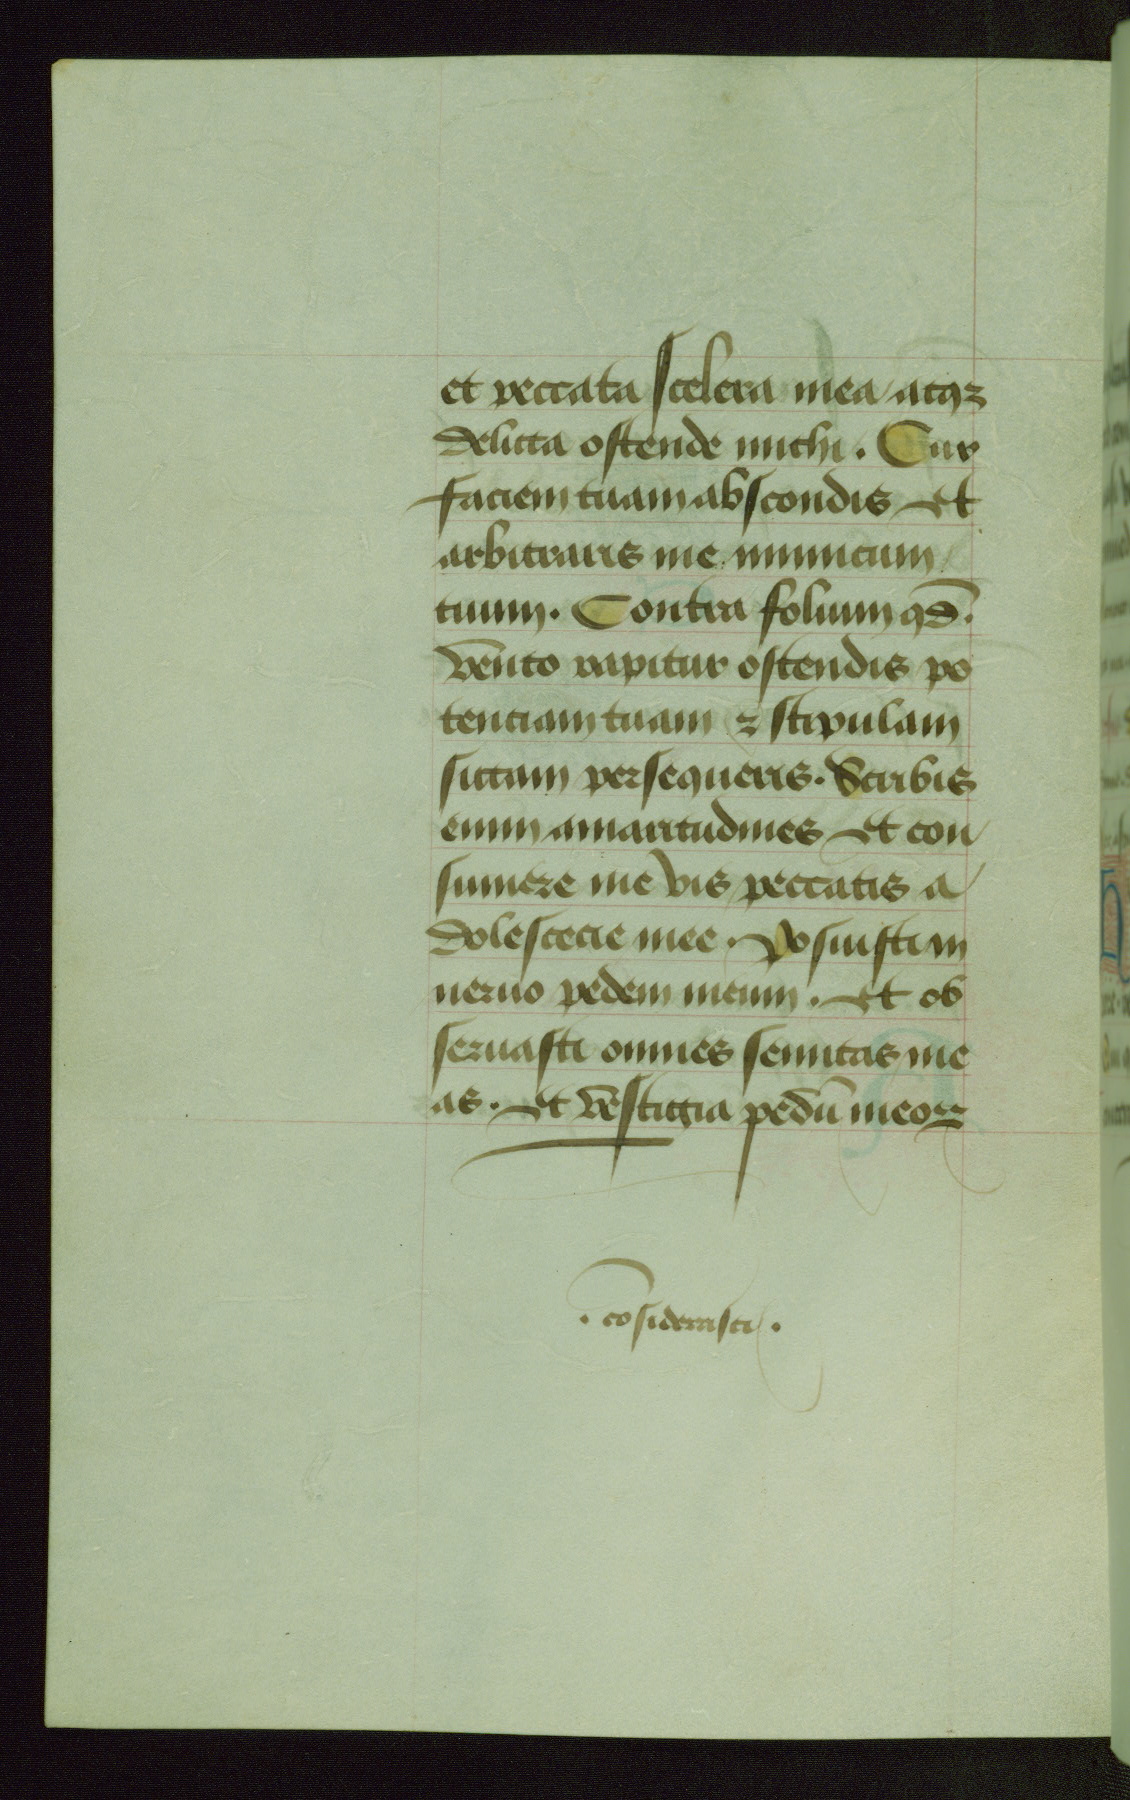 et peccata scelera mea atqꝫ
delicta ostende michi. Cur
faciem tuam abscondis Et
arbitraris me inimicum
tuum. Contra folium qd̄.
vento rapitur ostendis po
tenciam tuam ⁊ stipulam
siccam persequeris. Scribis
enim amaritudines Et con
sumere me vis peccatis a
dolescēcie mee. Posuisti in
neruo pedem meum. Et ob
seruasti omnes semitas me
as. Et vestigia pedū meoꝝ
. cōsiderasti .